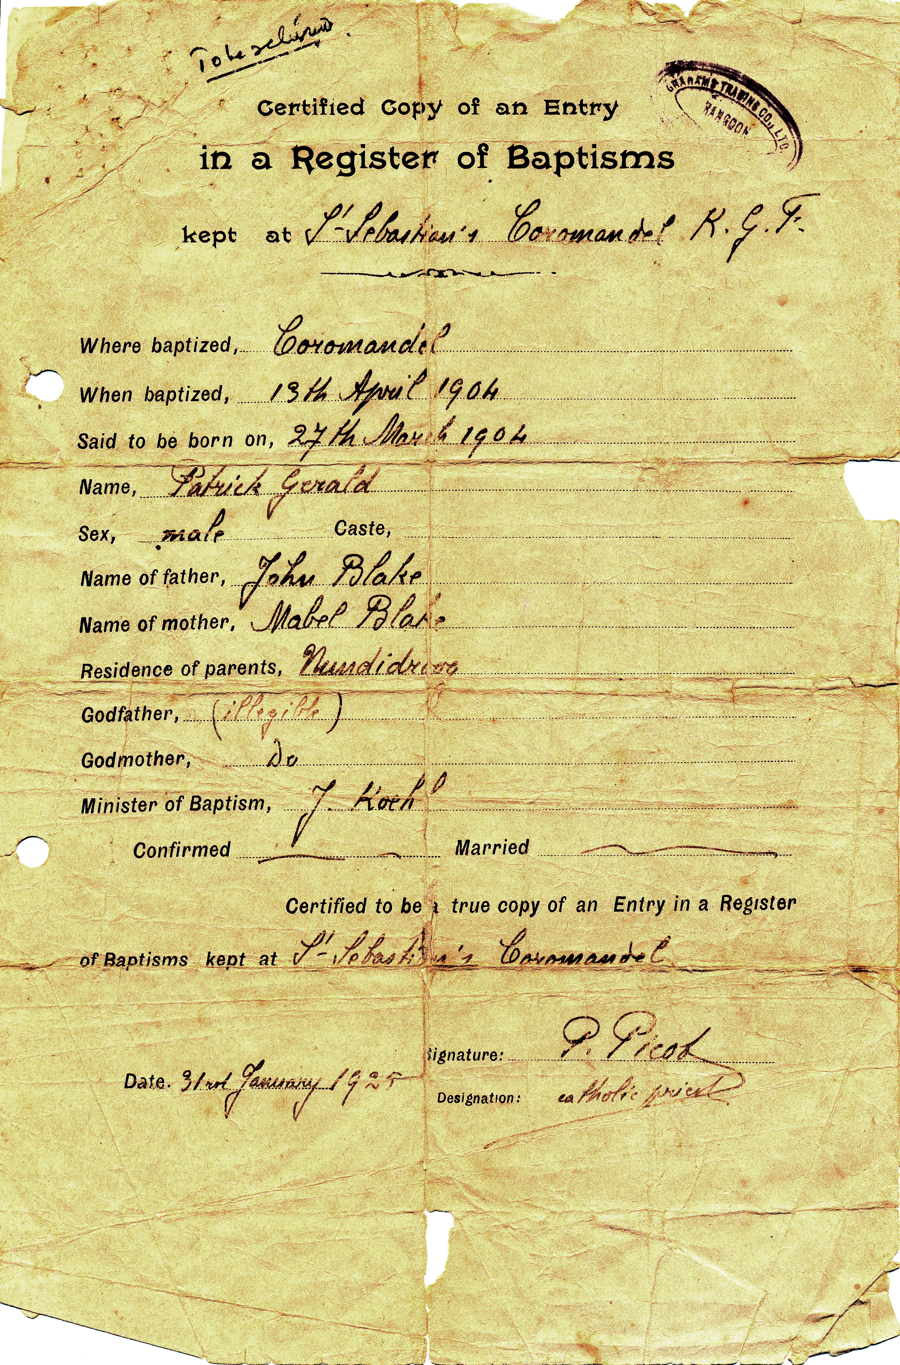 To be returned.
GRAHAMS TRADING CO., LTD.
RANGOON
Certified Copy of an Entry
in a Register of Baptisms
kept at St Sebastian's Coromandel K. G. F.
Where baptized, Coromandel
When baptized, 13th April 1904
Said to be born on, 27th March 1904
Name, Patrick Gerald
Sex, male Caste,
Name of father, John Blake
Name of mother, Mabel Blake
Residence of parents, Nundidroog
Godfather, (illegible)
Godmother, Do
Minister of Baptism, J. Koehl
Confirmed Married
Certified to be a true copy of an Entry in a Register
of Baptisms kept at St Sebastian's Coromandel
Signature: P. Picot
Date. 31st January 1925
Designation: catholic priest